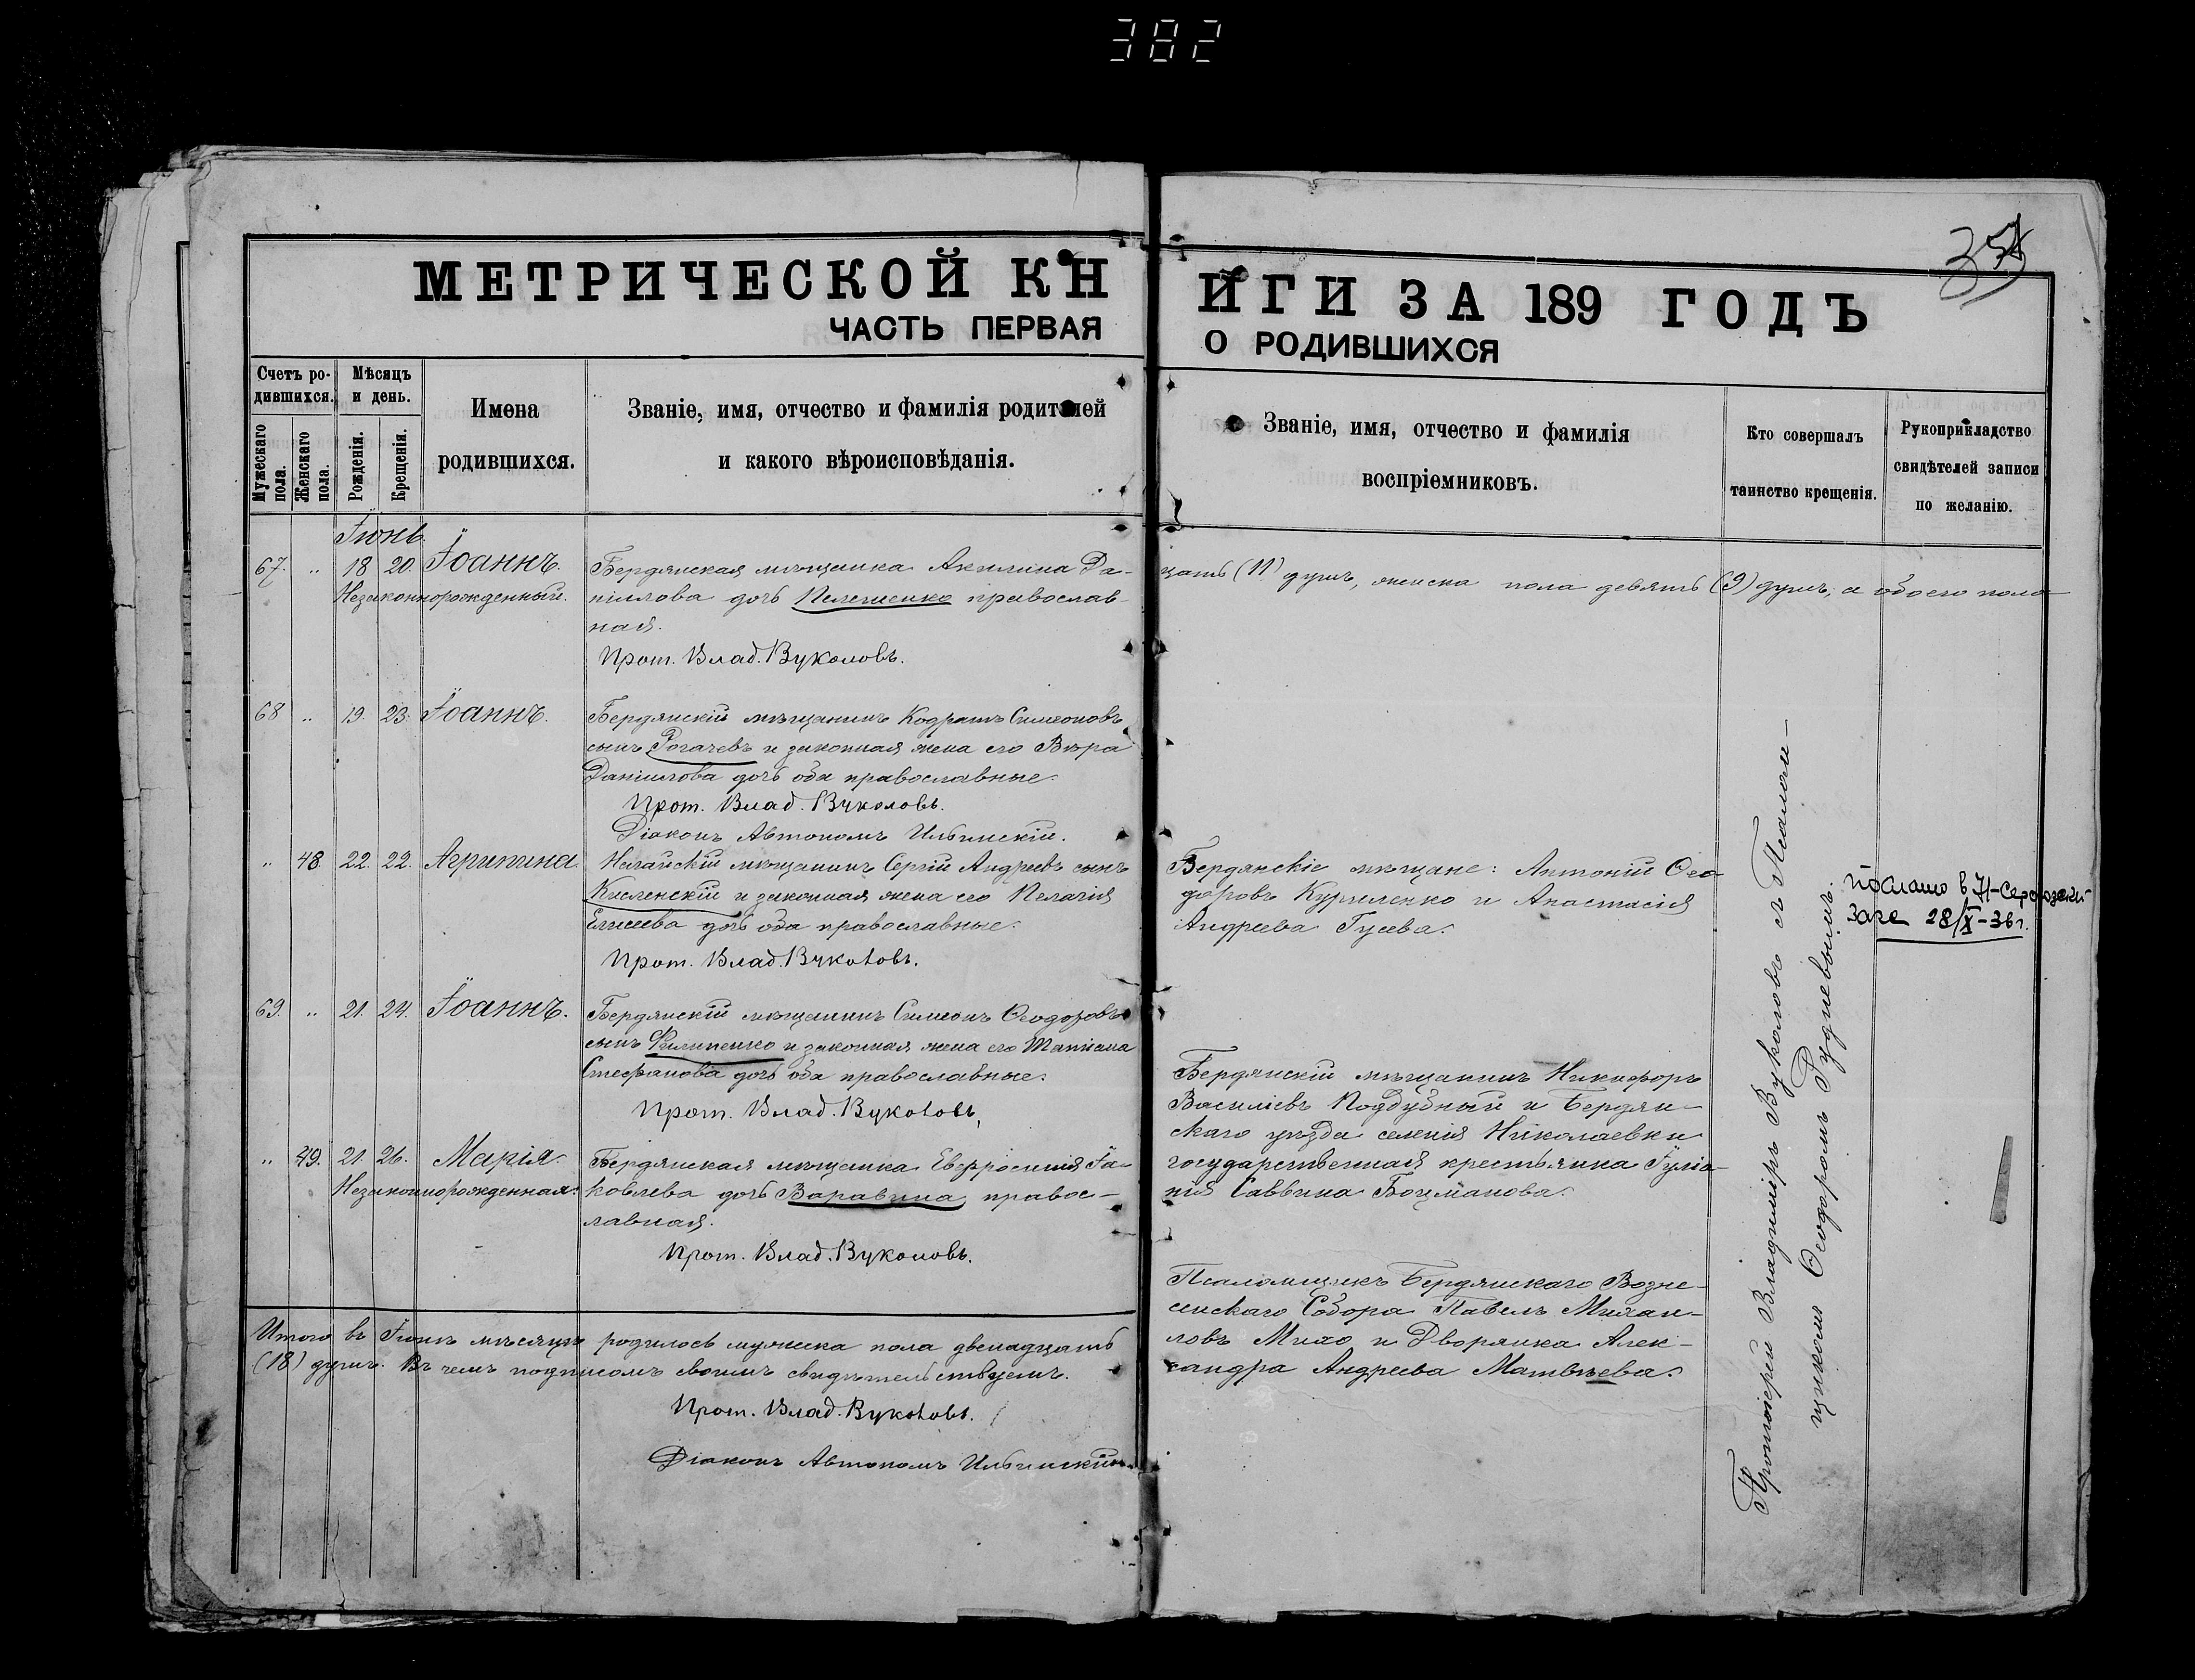 382
375
МЕТРИЧЕСКОЙ КН
ЧАСТЬ ПЕРВАЯ
Счетъ ро-
дившихся.
Мѣсяцъ
и день.
Мужескаго
пола.
Женскаго
пола.
Рожденія.
Крещенія.
Имена
родившихся.
Званіе, имя, отчество и фамилія родителей
и какого вѣроисповѣданія.
Іюнь.
67. " 18 20. Іоаннъ. Бердянская мѣщанка Акилина Да-
Незаконнорожденный. ніилова дочь православ
ная.
Прот. Влад. Вуколовъ.
68 " 19. 23. Іоаннъ. Бердянскій мѣщанинъ Кодратъ Симеоновъ
сынъ Рогачевъ и законная жена его Вѣра
Даніилова дочь оба православные.
Прот. Влад. Вуколовъ.
Діаконъ Автономъ Ильинскій.
" 48 22. 22. Агрипина Ногайскій мѣщанинъ Сергій Андреевъ сынъ
Кисленскій и законная жена его Пелагія
Елисеева дочь оба православные.
Прот. Влад. Вуколовъ.
69. " 21. 24. Іоаннъ. Бердянскій мѣщанинъ Симеонъ Ѳеодоровъ
сынъ Филипенко и законная жена его Татіана
Стефанова дочь оба православные.
Прот. Влад. Вуколовъ.
" 49. 21. 26. Марія. Бердянская мѣщанка Евфросинія Іа-
Незаконнорожденная. ковлева дочь Варавина правос-
лавная.
Прот. Влад. Вуколовъ.
Итого въ Іюнѣ мѣсяцѣ родилось мужеска пола двенадцать
(18) душъ. Въ чемъ подписомъ своимъ свидѣтельствуемъ.
Прот. Влад. Вуколовъ.
Діаконъ Автономъ Ильинскій.
ИГИ ЗА 189 ГОДЪ
О РОДИВШИХСЯ
Званіе, имя, отчество и фамилія
воспріемниковъ.
Кто совершалъ
таинство крещенія.
Рукоприкладство
свидѣтелей записи
по желанію.
цать (11) душъ, женска пола девять (9) душъ, а обоего пола
Бердянскіе мѣщане: Антоній Ѳео-
доровъ Куриленко и Анастасія
Андреева Гусева.
Бердянскій мѣщанинъ Никифоръ
Василіевъ Поддубный и Бердян-
скаго уѣзда селенія Николаевки
государственная крестьянка Іуліа-
нія Саввина Боцманова.
Псаломщикъ Бердянскаго Возне-
сенскаго Собора Павелъ Михаи-
ловъ Михо и Дворянка Алек-
сандра Андреева Матвѣева.
Протоіерей Владиміръ Вуколовъ съ Псалом-
щикомъ Ѳеодоромъ Рудневымъ.
послано в
Загс 28/X-36 г.